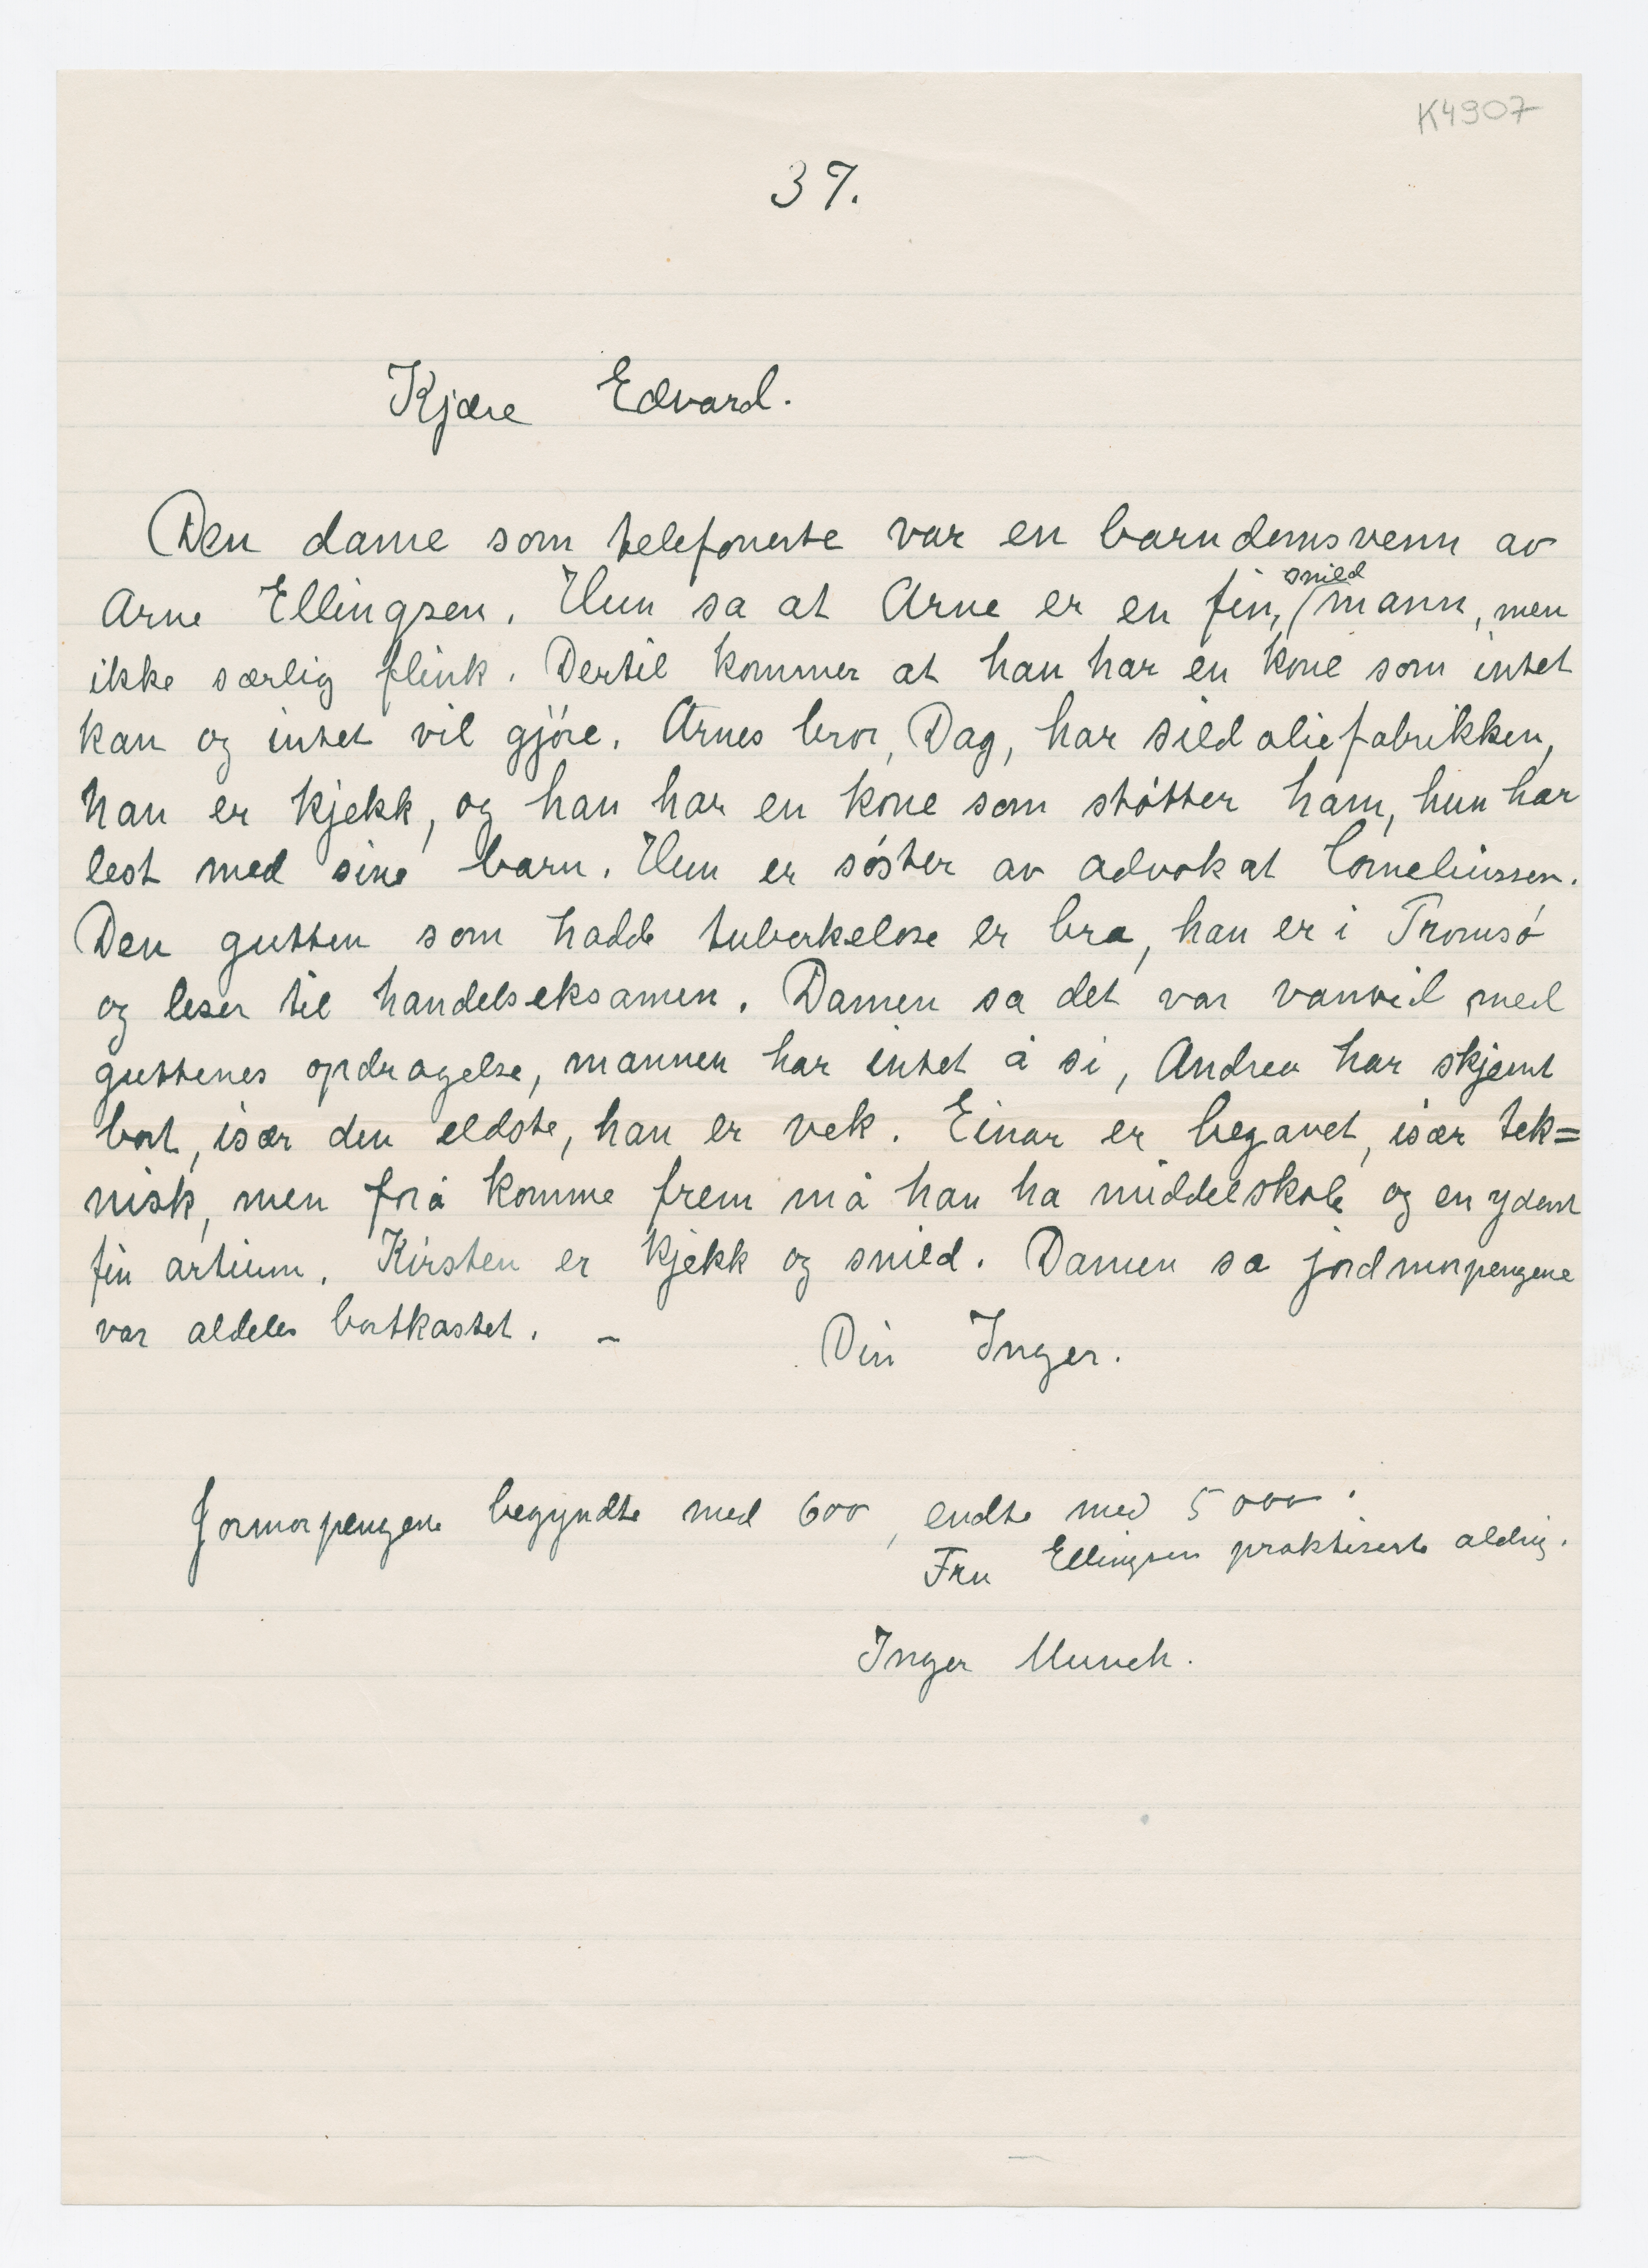 K4907
37.
Kjære Edvard.
Den dame som telefonerte var en barndomsvenn av
Arne Ellingsen. Hun sa at Arne er en fin, snild mann, men
ikke særlig flink. Dertil kommer at han har en kone som intet
kan og intet vil gjöre. Arnes bror, Dag, har sildoliefabrikken,
han er kjekk, og han har en kone som støtter ham, hun har
lest med sine barn. Hun er søster av advokat Corneliussen.
Den gutten som hadde tuberkelose er bra, han er i Tromsø
og leser til handelseksamen. Damen sa det var vanvid med
guttenes opdragelse, mannen har intet å si, Andrea har skjemt
bort, især den eldste, han er vek. Einar er begavet, især tek=
nisk, men for å komme frem må han ha middelskole og en yderst
fin artium. Kirsten er kjekk og snild. Damen sa jordmorpengene
var aldeles bortkastet. –
Din Inger.
Jormorpengene begyndte med 600, endte med 5000.
Fru Ellingsen praktiserte aldrig.
Inger Munch.